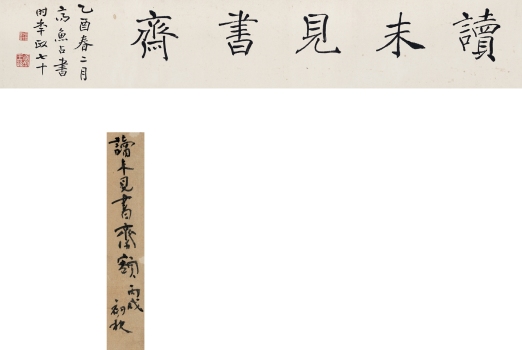 讀未見書齋
乙酉春二月
高魚占書
時年政七十
讀未見書齋額
丙戌
初秋